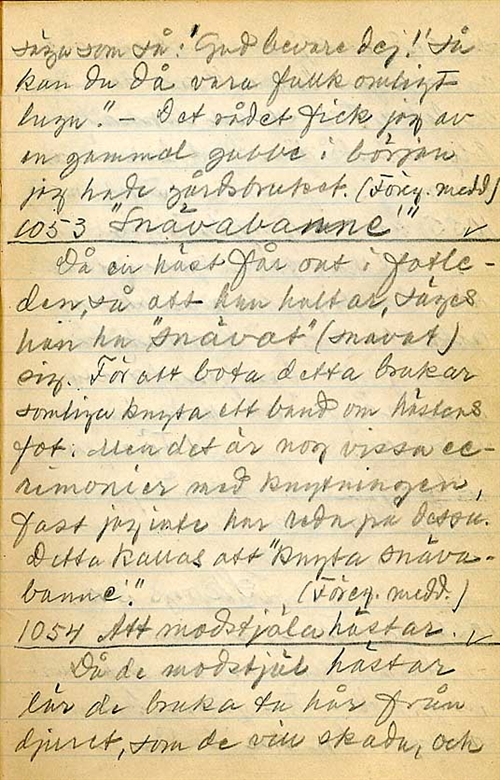 säga som så: "Gud bevare dej!" Så
kan du då vara fullkomligt
lugn." – Det rådet fick jag av
en gammal gubbe i början
jag hade gårdsbruket. (Föreg. medd)
1053 "Snävabanne'"
Då en häst får ont i fotle-
den, så att han haltar, säges
han ha "snävat" (snavat)
sig. För att bota detta brukar
somliga knyta ett band om hästens
fot. Men det är nog vissa ce-
remonier med knytningen,
fast jag inte har reda på dessa.
Detta kallas att "knyta snäva-
banne'." (Föreg. medd.)
1054 Att modstjäla hästar.
Då de modstjäl hästar
lär de bruka ta hår från
djuret, som de vill skada, och